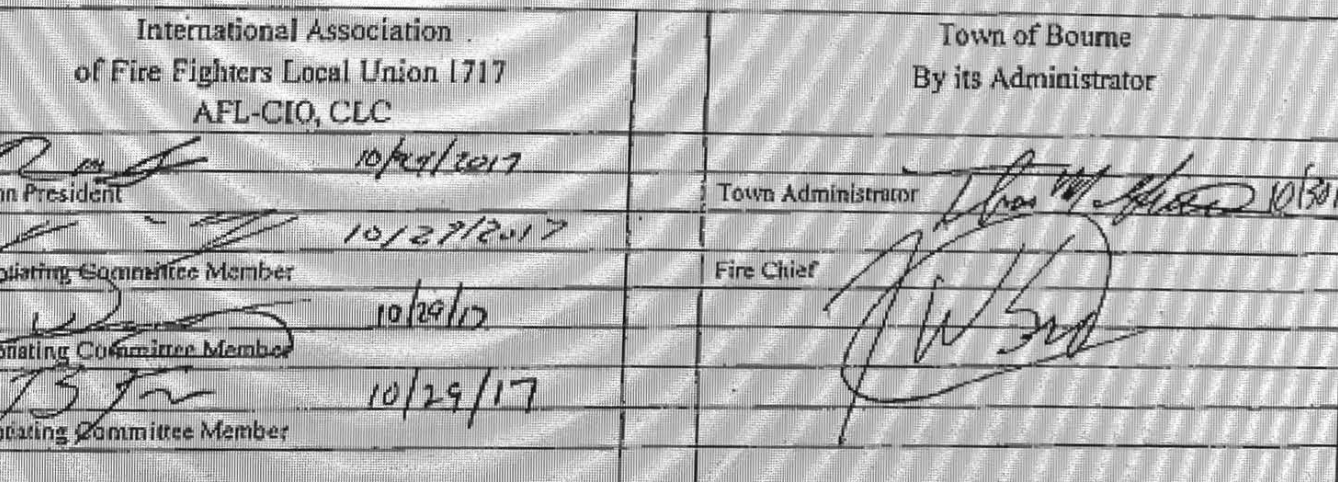 International Association
of Fire Fighters Local Union 1717
AFL-CIO, CLC
10/29/2017
n President
10/27/2017
tiating Committee Member
10/29/17
tiating Committee Member
10/29/17
tiating Committee Member
Town of Bourne
By its Administrator
Town Administrator 10/30
Fire Chief